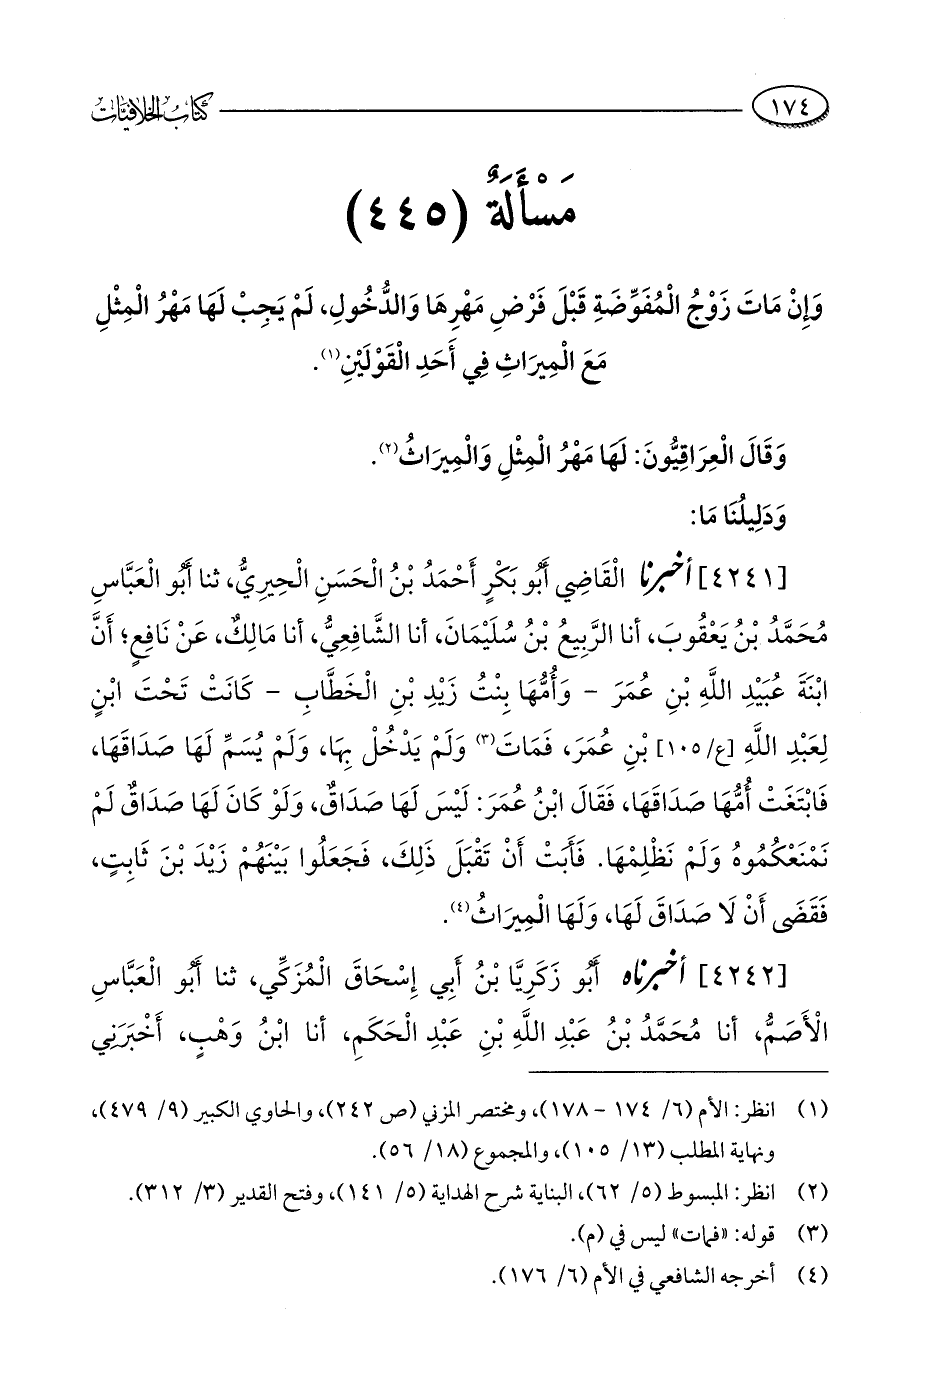 ١٧٤ كتاب الخلافيات
مَسْأَلَةٌ (٤٤٥)
وَإِنْ مَاتَ زَوْجُ الْمُفَوِّضَةِ قَبْلَ فَرْضِ مَهْرِهَا وَالدُّخُولِ، لَمْ يَجِبْ لَهَا مَهْرُ الْمِثْلِ
مَعَ الْمِيرَاثِ فِي أَحَدِ الْقَوْلَيْنِ(١).
وَقَالَ الْعِرَاقِيُّونَ: لَهَا مَهْرُ الْمِثْلِ وَالْمِيرَاثُ(٢).
وَدَلِيلُنَا مَا:
[٤٢٤١] أخبرنا الْقَاضِي أَبُو بَكْرٍ أَحْمَدُ بْنُ الْحَسَنِ الْحِيرِيُّ، ثنا أَبُو الْعَبَّاسِ
مُحَمَّدُ بْنُ يَعْقُوبَ، أنا الرَّبِيعُ بْنُ سُلَيْمَانَ، أنا الشَّافِعِيُّ، أنا مَالِكٌ، عَنْ نَافِعٍ؛ أَنَّ
ابْنَةَ عُبَيْدِ اللَّهِ بْنِ عُمَرَ - وَأُمُّهَا بِنْتُ زَيْدِ بْنِ الْخَطَّابِ - كَانَتْ تَحْتَ ابْنٍ
لِعَبْدِ اللَّهِ [ع/١٠٥] بْنِ عُمَرَ، فَمَاتَ(٣) وَلَمْ يَدْخُلْ بِهَا، وَلَمْ يُسَمِّ لَهَا صَدَاقَهَا،
فَابْتَغَتْ أُمُّهَا صَدَاقَهَا، فَقَالَ ابْنُ عُمَرَ: لَيْسَ لَهَا صَدَاقٌ، وَلَوْ كَانَ لَهَا صَدَاقٌ لَمْ
نَمْنَعْكُمُوهُ وَلَمْ نَظْلِمْهَا. فَأَبَتْ أَنْ تَقْبَلَ ذَلِكَ، فَجَعَلُوا بَيْنَهُمْ زَيْدَ بْنَ ثَابِتٍ،
فَقَضَى أَنْ لَا صَدَاقَ لَهَا، وَلَهَا الْمِيرَاثُ(٤).
[٤٢٤٢] أخبرناه أَبُو زَكَرِيَّا بْنُ أَبِي إِسْحَاقَ الْمُزَكِّي، ثنا أَبُو الْعَبَّاسِ
الْأَصَمُّ، أنا مُحَمَّدُ بْنُ عَبْدِ اللَّهِ بْنِ عَبْدِ الْحَكَمِ، أنا ابْنُ وَهْبٍ، أَخْبَرَنِي
(١) انظر: الأم (٦/ ١٧٤ - ١٧٨)، ومختصر المزني (ص ٢٤٢)، والحاوي الكبير (٩/ ٤٧٩)،
ونهاية المطلب (١٣/ ١٠٥)، والمجموع (١٨/ ٥٦).
(٢) انظر: المبسوط (٥/ ٦٢)، البناية شرح الهداية (٥/ ١٤١)، وفتح القدير (٣/ ٣١٢).
(٣) قوله: «فمات» ليس في (م).
(٤) أخرجه الشافعي في الأم (٦/ ١٧٦).